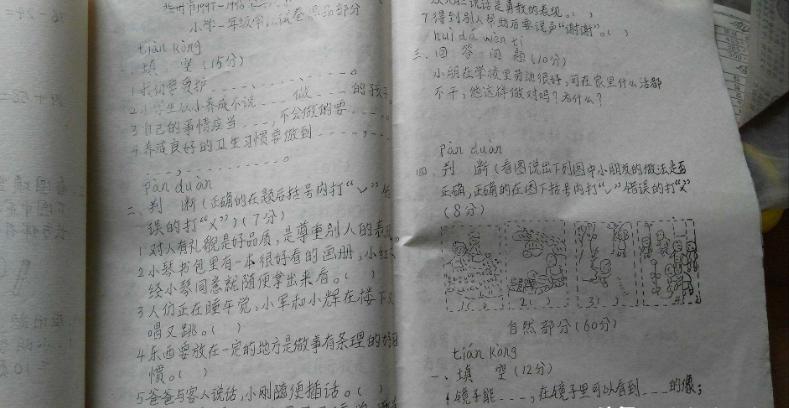 小学一年级
部分
tián kòng
一、填 空 (15分)
1 我们要爱护
2 小学生从小养成不说 做 的孩
3 自己的事情应当 ，不会做的要
4 养成良好的卫生习惯要做到
pàn duàn
二、判 断(正确的在题后括号内打“✓”错
误的打“×”)(7分)
1 对人有礼貌是好品质，是尊重别人的表现。
2 小琴书包里有一本很好看的画册，小红
经小琴同意就随便拿出来看。( )
3 人们正在睡午觉，小军和小辉在楼下又
唱又跳。( )
4 东西要放在一定的地方是做事有条理的好习
惯。( )
5 爸爸与客人说话，小刚随便插话。( )
说话是勇敢的表现。( )
7 得到别人帮助后要说声“谢谢”。( )
huí dá wèn tí
三、回答问题(10分)
小朋在学校里劳动很好，可在家里什么活都
不干，他这样做对吗？为什么？
pàn duàn
四、判 断(看图说出下列图中小朋友的做法是否
正确，正确的在图下括号内打“✓”错误的打“×”)
(8分)
1( ) 2( ) 3( )
自然部分(60分)
tián kòng
一、填 空(12分)
1 镜子能 ，在镜子里可以看到 的像；